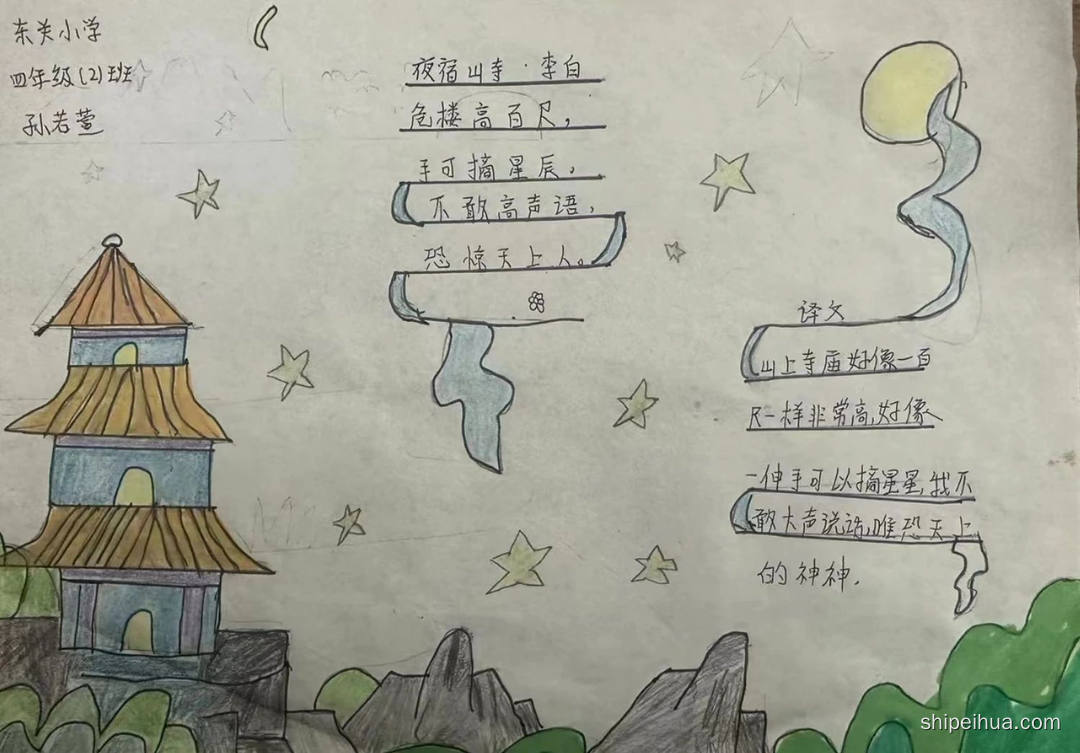 东关小学
四年级(2)班
孙若萱
夜宿山寺·李白
危楼高百尺，
手可摘星辰。
不敢高声语，
恐惊天上人。
译文
山上寺庙好像一百
尺一样非常高,好像
一伸手可以摘星星,我不
敢大声说话,唯恐天上
的神神.
shipeihua.com